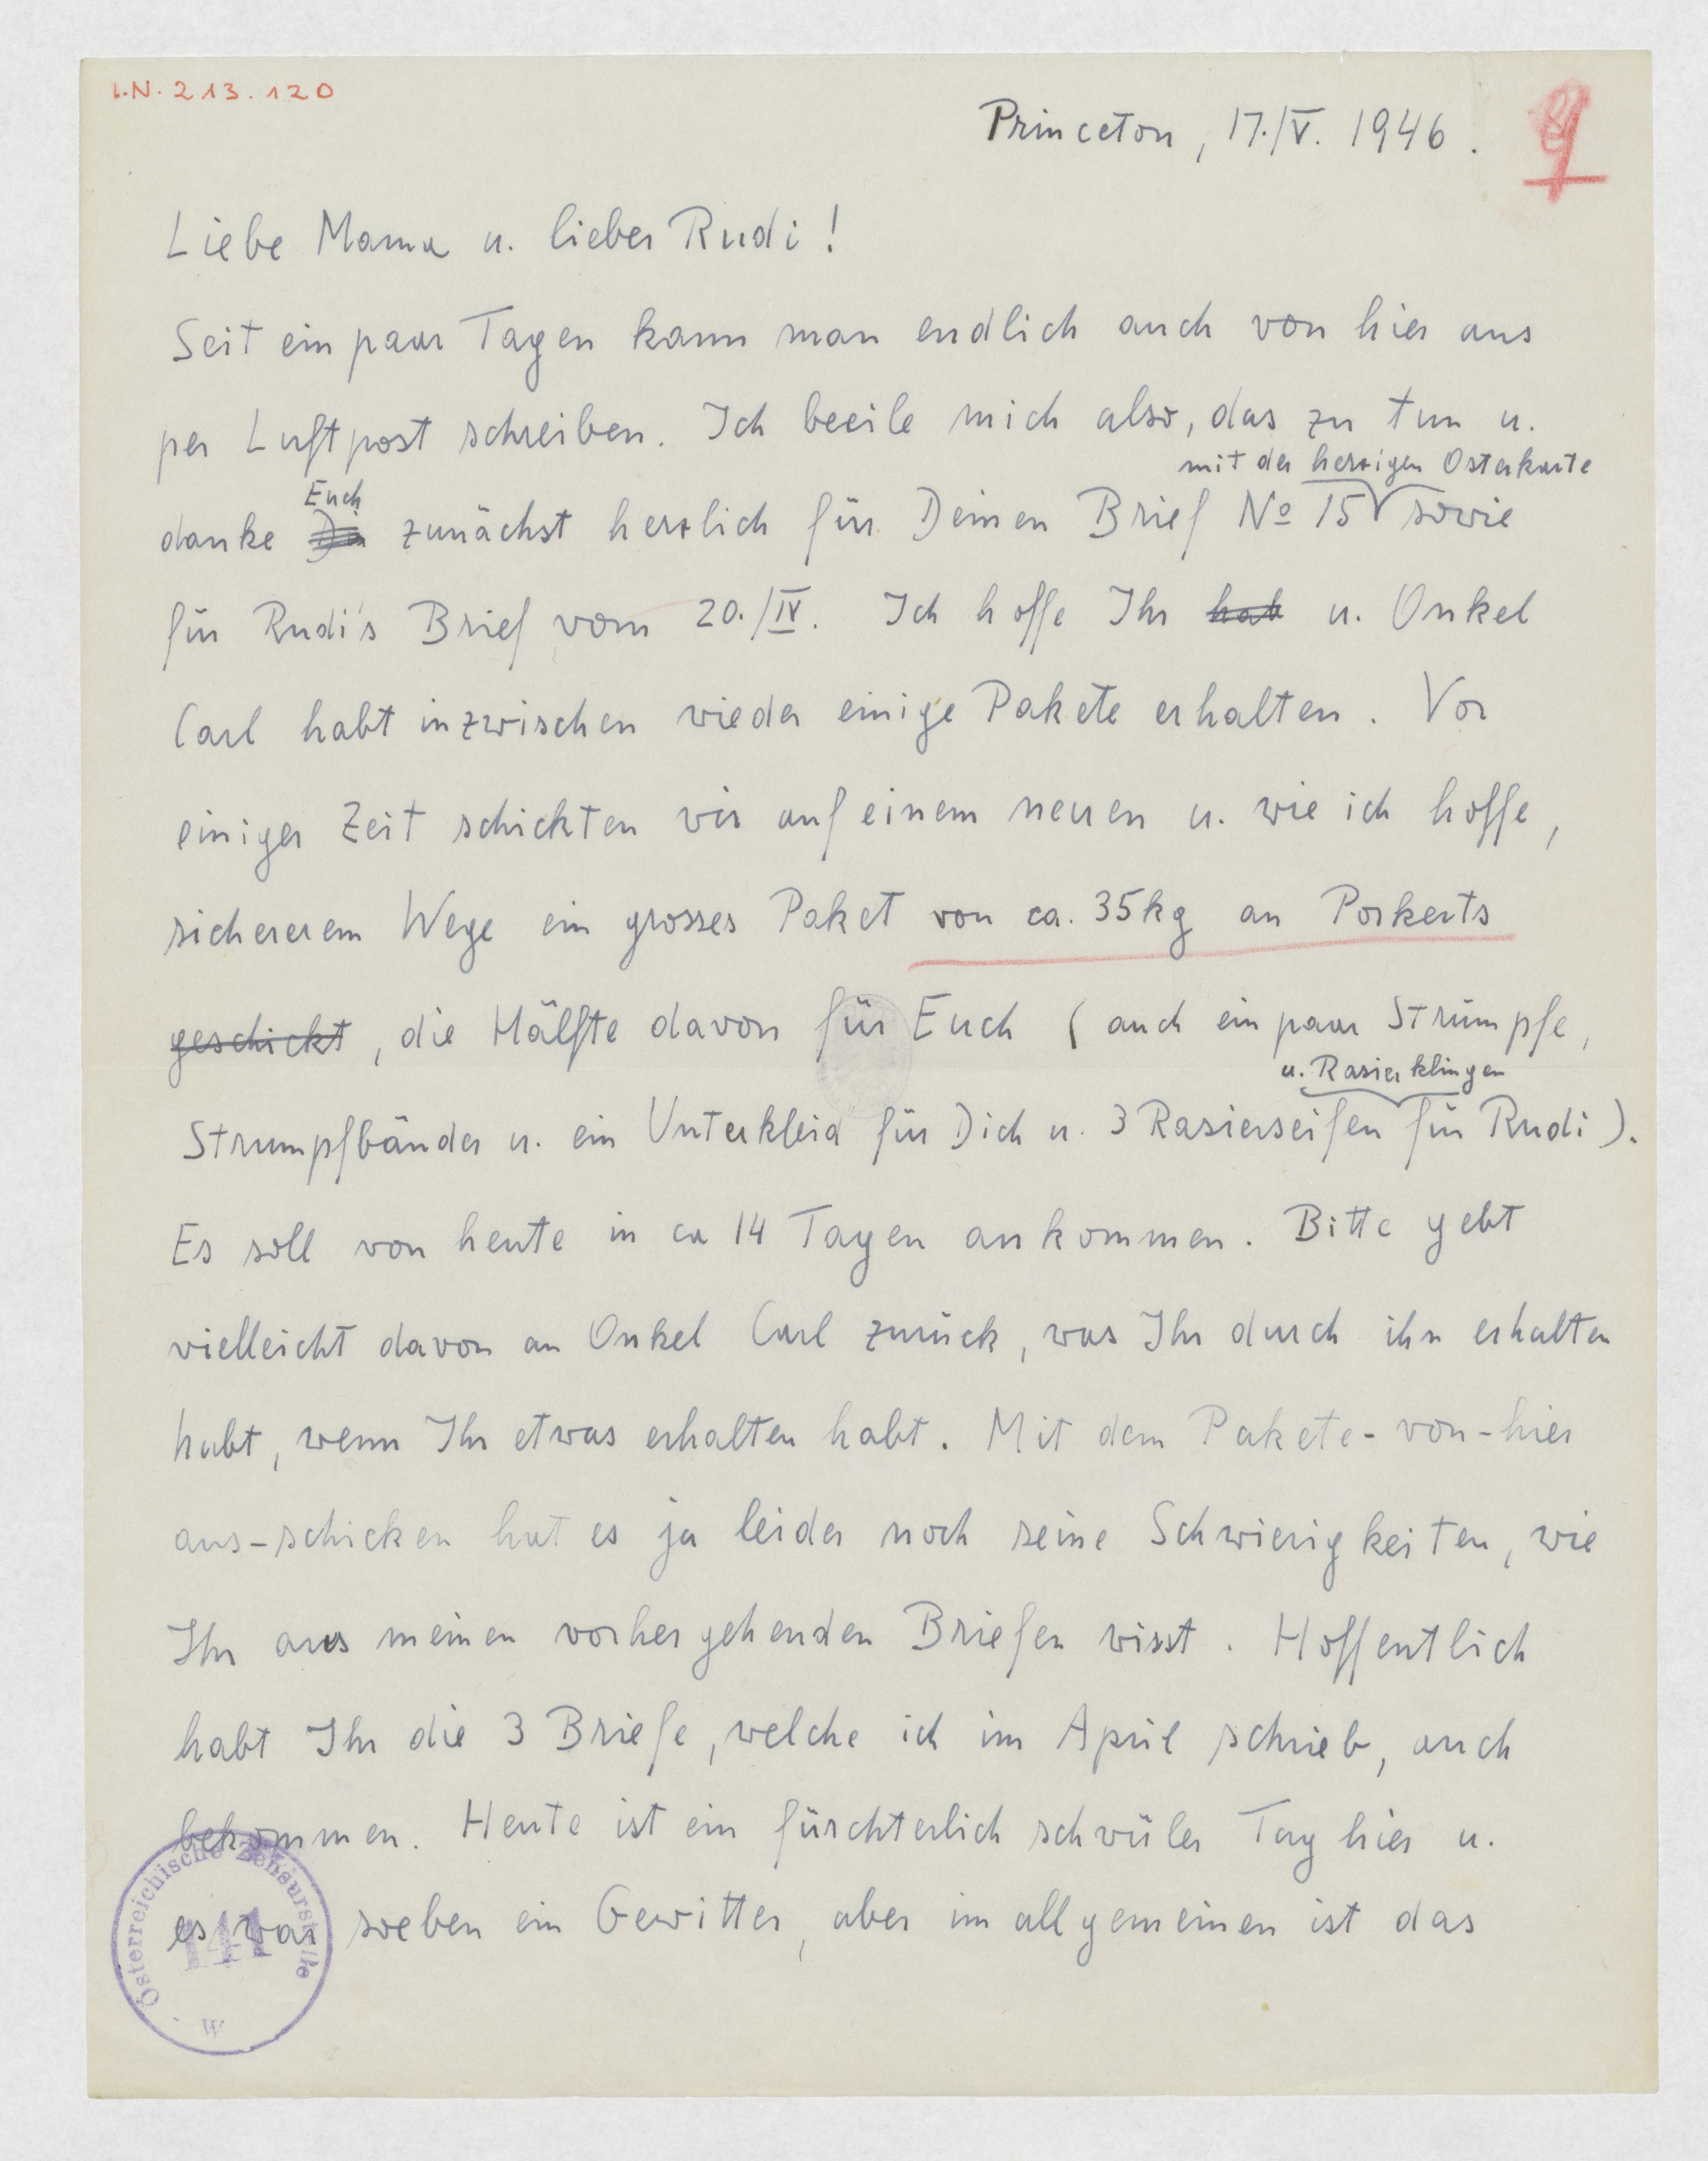 I.N. 213.120
Princeton, 17./V. 1946.
9
Liebe Mama u. lieber Rudi!
Seit ein paar Tagen kann man endlich auch von hier aus
per Luftpost schreiben. Ich beeile mich also, das zu tun u.
mit der herzigen Osterkarte
Euch
danke zunächst herzlich für Deinen Brief No 15 sowie
für Rudi's Brief vom 20./IV. Ich hoffe Ihr hab u. Onkel
Carl habt inzwischen wieder einige Pakete erhalten. Vor
einiger Zeit schickten wir auf einem neuen u. wie ich hoffe,
sichererem Wege ein grosses Paket von ca. 35kg an Porkerts
geschickt, die Hälfte davon für Euch (auch ein paar Strümpfe,
u. Rasierklingen
Strumpfbänder u. ein Unterkleid für Dich u. 3 Rasierseifen für Rudi).
Es soll von heute in ca 14 Tagen ankommen. Bitte gebt
vielleicht davon an Onkel Carl zurück, was Ihr durch ihn erhalten
habt, wenn Ihr etwas erhalten habt. Mit dem Pakete-von-hier
aus-schicken hat es ja leider noch seine Schwierigkeiten, wie
Ihr aus meinen vorhergehenden Briefen wisst. Hoffentlich
habt Ihr die 3 Briefe, welche ich im April schrieb, auch
bekommen. Heute ist ein fürchterlich schwüler Tag hier u.
es war soeben ein Gewitter, aber im allgemeinen ist das
Österreichische Zensurstelle
141
W